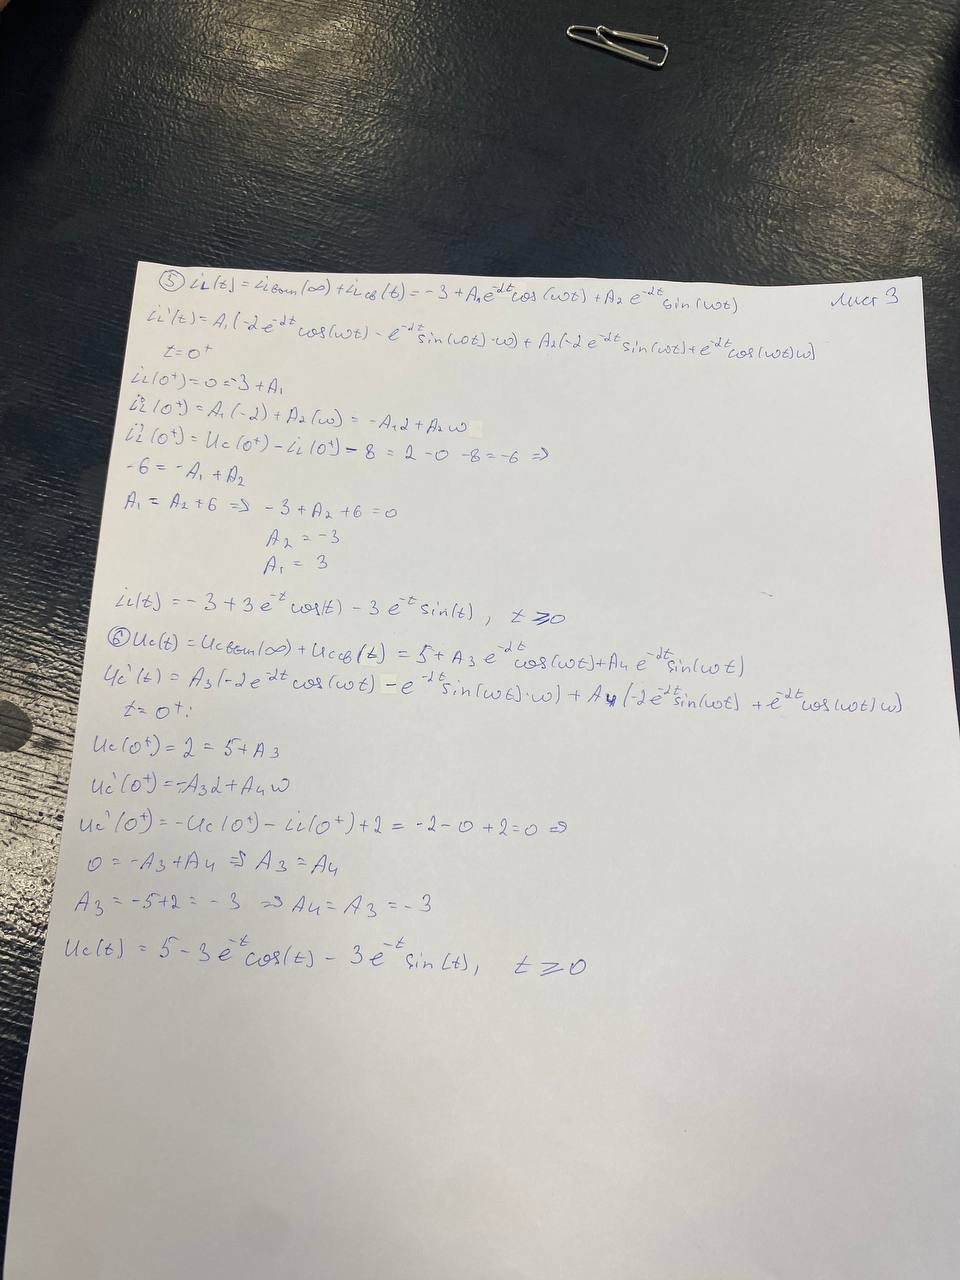 ⑤ iL(t) = iLвын(∞) + iLсв(t) = -3 + A₁e^-αt cos(ωt) + A₂ e^-αt sin(ωt)
Лист 3
iL'(t) = A₁(-αe^-αt cos(ωt) - e^-αt sin(ωt)·ω) + A₂(-αe^-αt sin(ωt) + e^-αt cos(ωt)ω)
t=0⁺
iL(0⁺) = 0 = -3 + A₁
iL'(0⁺) = A₁(-α) + A₂(ω) = -A₁α + A₂ω
iL'(0⁺) = Uc(0⁺) - iL(0⁺) - 8 = 2 - 0 - 8 = -6 ⇒
-6 = -A₁ + A₂
A₁ = A₂ + 6 ⇒ -3 + A₂ + 6 = 0
A₂ = -3
A₁ = 3
iL(t) = -3 + 3e^-t cos(t) - 3e^-t sin(t), t ⩾ 0
⑥ Uc(t) = Ucвын(∞) + Ucсв(t) = 5 + A₃ e^-αt cos(ωt) + A₄ e^-αt sin(ωt)
Uc'(t) = A₃(-αe^-αt cos(ωt) - e^-αt sin(ωt)·ω) + A₄(-αe^-αt sin(ωt) + e^-αt cos(ωt)ω)
t = 0⁺:
Uc(0⁺) = 2 = 5 + A₃
Uc'(0⁺) = -A₃α + A₄ω
Uc'(0⁺) = -Uc(0⁺) - iL(0⁺) + 2 = -2 - 0 + 2 = 0 ⇒
0 = -A₃ + A₄ ⇒ A₃ = A₄
A₃ = -5 + 2 = -3 ⇒ A₄ = A₃ = -3
Uc(t) = 5 - 3e^-t cos(t) - 3e^-t sin(t), t ⩾ 0